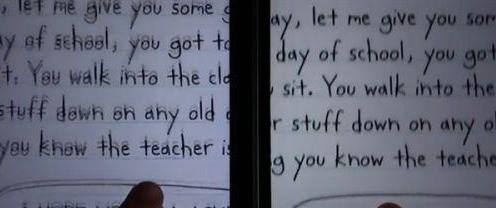 , let me give you some
y of school, you got to
t. You walk into the cla
stuff down on any old
you know the teacher is
ay, let me give you som
day of school, you got
sit. You walk into the
r stuff down on any o
g you know the teache